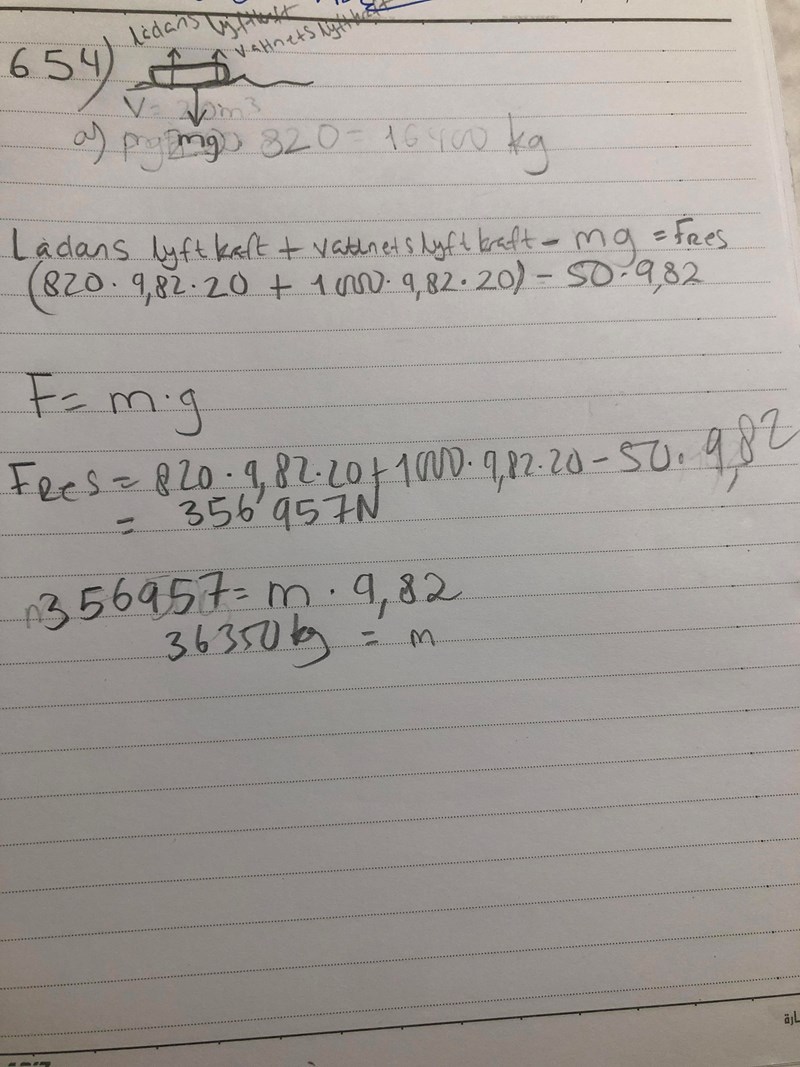 Lådans lyftkraft
vattnets lyftkraft
654)
V = 20m³
mg
a) 820 = 16400 kg
Lådans lyftkraft + vattnets lyftkraft - mg = Fres
(820 · 9,82 · 20 + 1000 · 9,82 · 20) - 50 · 9,82
F = m · g
FRes = 820 · 9,82 · 20 + 1000 · 9,82 · 20 - 50 · 9,82
= 356 957N
356957 = m · 9,82
36350kg = m